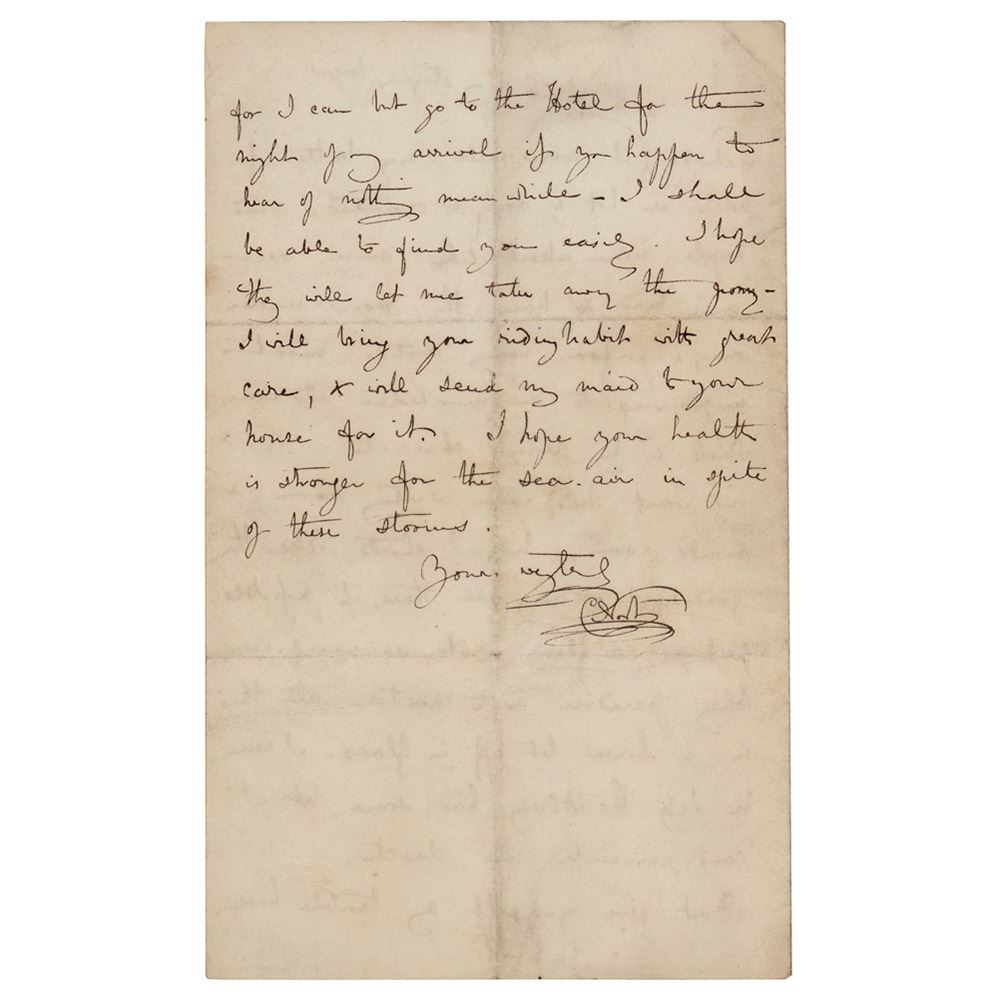 for I can but go to the Hotel for the
night of my arrival if you happen to
hear of nothing meanwhile - I shall
be able to find you easily. I hope
they will let me take away the pony -
I will bring your riding habit with great
care, & will send my maid to your
house for it. I hope your health
is stronger for the sea-air in spite
of these storms.
Yours
CNorton